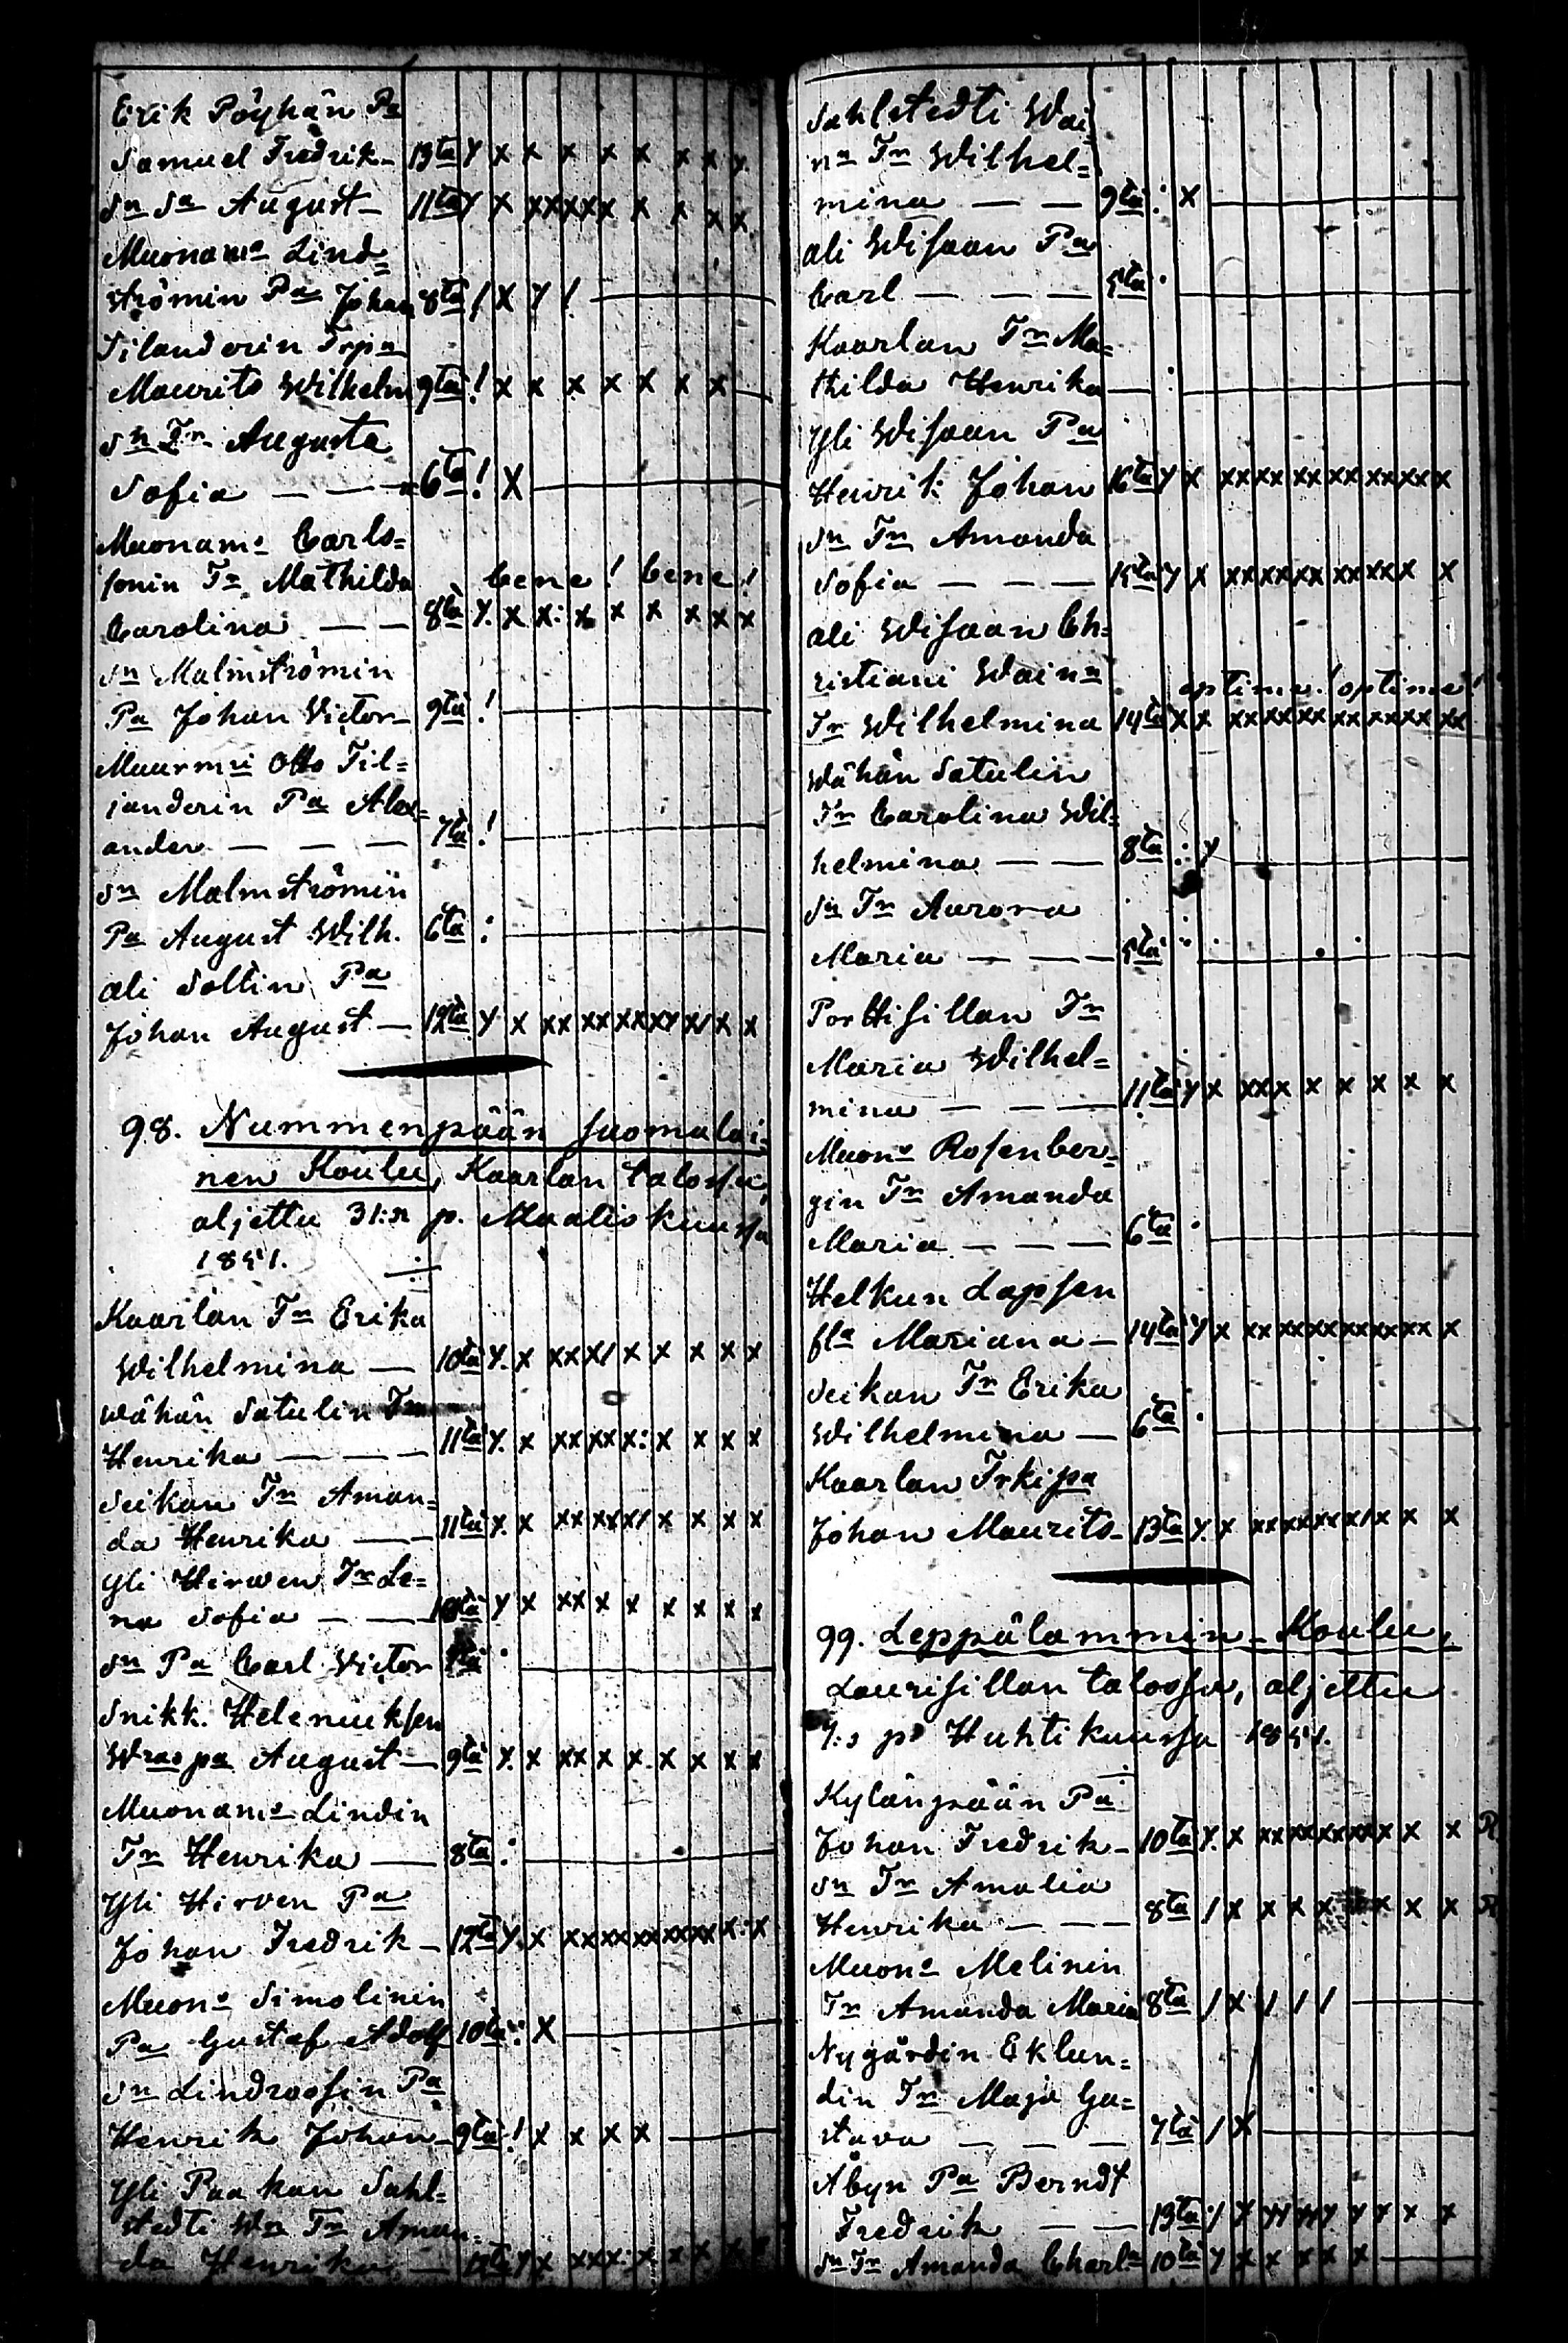 Erik Pöyhän Pa
Samuel Fredrik- 13ta Y x x x x x x x x
Sn Sa August- 11ta Y x xx xx x x x x x
Muonams Lind=
strömin Pa Johan 8ta / X Y !
Silanderin Trpa
Maurits Wilhelm 9ta ! x x x x x x x
Sn Tr Augusta
Sofia — — 6ta ! X
Muonams Carls=
sonin Tr Mathilda bene! bene!
Carolina — — 8ta Y. x x: x x x x x x
Sn Malmströmin
Pa Johan Victor- 9ta !
Muurmri Otto Til=
janderin Pa Alex=
ander — — — 7ta !
Sn Malmströmin
Pa August Wilh. 6ta :
Ali Sollin Pa
Johan August — 12ta Y x xx xx xx xy x/ x x
98. Nummenpään Suomalai=
nen Koulu, Kaarlan talossa,
aljettu 31:n p. Maaliskuussa
1851.
Kaarlan Tr Erika
Wilhelmina — 10ta Y. x xx x/ x x x x x
Wähän Satulin Tr
Henrika — — — 11ta Y. x xx xx x: x x x x
Seikan Tr Aman=
da Henrika — — 11ta Y. x xx xx x/ x x x x
Yli Hirwen Tr Le=
na Sofia — — Y x xx x x x x x x
Sn Pa Carl Victor
Snikk. Heleniuksen
Wras pa August — 9ta Y. x xx x x. x x x x
Muonams Lindin
Tr Henrika — 8ta :
Yli Hirven Pa
Johan Fredrik — 12ta Y. x xx xx xx xx xx x: x
Muons Simolinin
Pa Gustaf Adolf 10ta : X
Sn Lindroosin Pa
Henrik Johan — 9ta ! x x x x
Yli Paakan Sahl=
stedti Wn Tr Aman=
da Henrika —
Sahlstedti Wai
na Tr Wilhel=
mina — — 9ta : x
Ali Wisaan Pa
Carl — — — 5ta ·
Kaarlan Tr Ma=
thilda Henrika — :
Yli Wisaan Pa
Henrik Johan 16ta Y x xx xx xx xx xx xx x
Sn Tr Amanda
Sofia — — — 15ta Y x xx xx xx xx xx x x
Ali Wisaan Ch=
ristiani Waina optime! optime!
Tr Wilhelmina 14ta x x xx xx xx xx xx xx xx
Wähän Satulin
Tr Carolina Wil=
helmina — — 8ta : Y
Sn Tr Aurora
Maria — — — 5ta
Porttisillan Tr
Maria Wilhel=
mina — — — 11ta Y x xx x x x x x x
Muons Rosenber=
gin Tr Amanda
Maria — — — 6ta ·
Helkun Lapsen
fla Mariana — 14ta Y x xx xx xx xx xx xx x
Seikan Tr Erika
Wilhelmina — 6ta ·
Kaarlan Trkipa
Johan Maurits- 13ta Y. x xx xx xx x/ x x x
99. Leppälammin-Koulu,
Laurisillan talossa, aljettu
7:s p. Huhtikuussa 1851.
Kylänpään Pa
Johan Fredrik- 10ta Y. x xx xx xx xx x x x R
Sn Tr Amalia
Henrika — — — 8ta / x x x x x x x R
Muons Melinin
Tr Amanda Maria 8ta / x / / /
Nygårdin Eklun=
din Tr Maja Gu=
stava — — — 7ta / x
Åbyn Pa Berndt
Fredrik — — 13ta / x YY YY Y Y x x
Sn Tr Amanda Charl. 10ta Y x x x x x